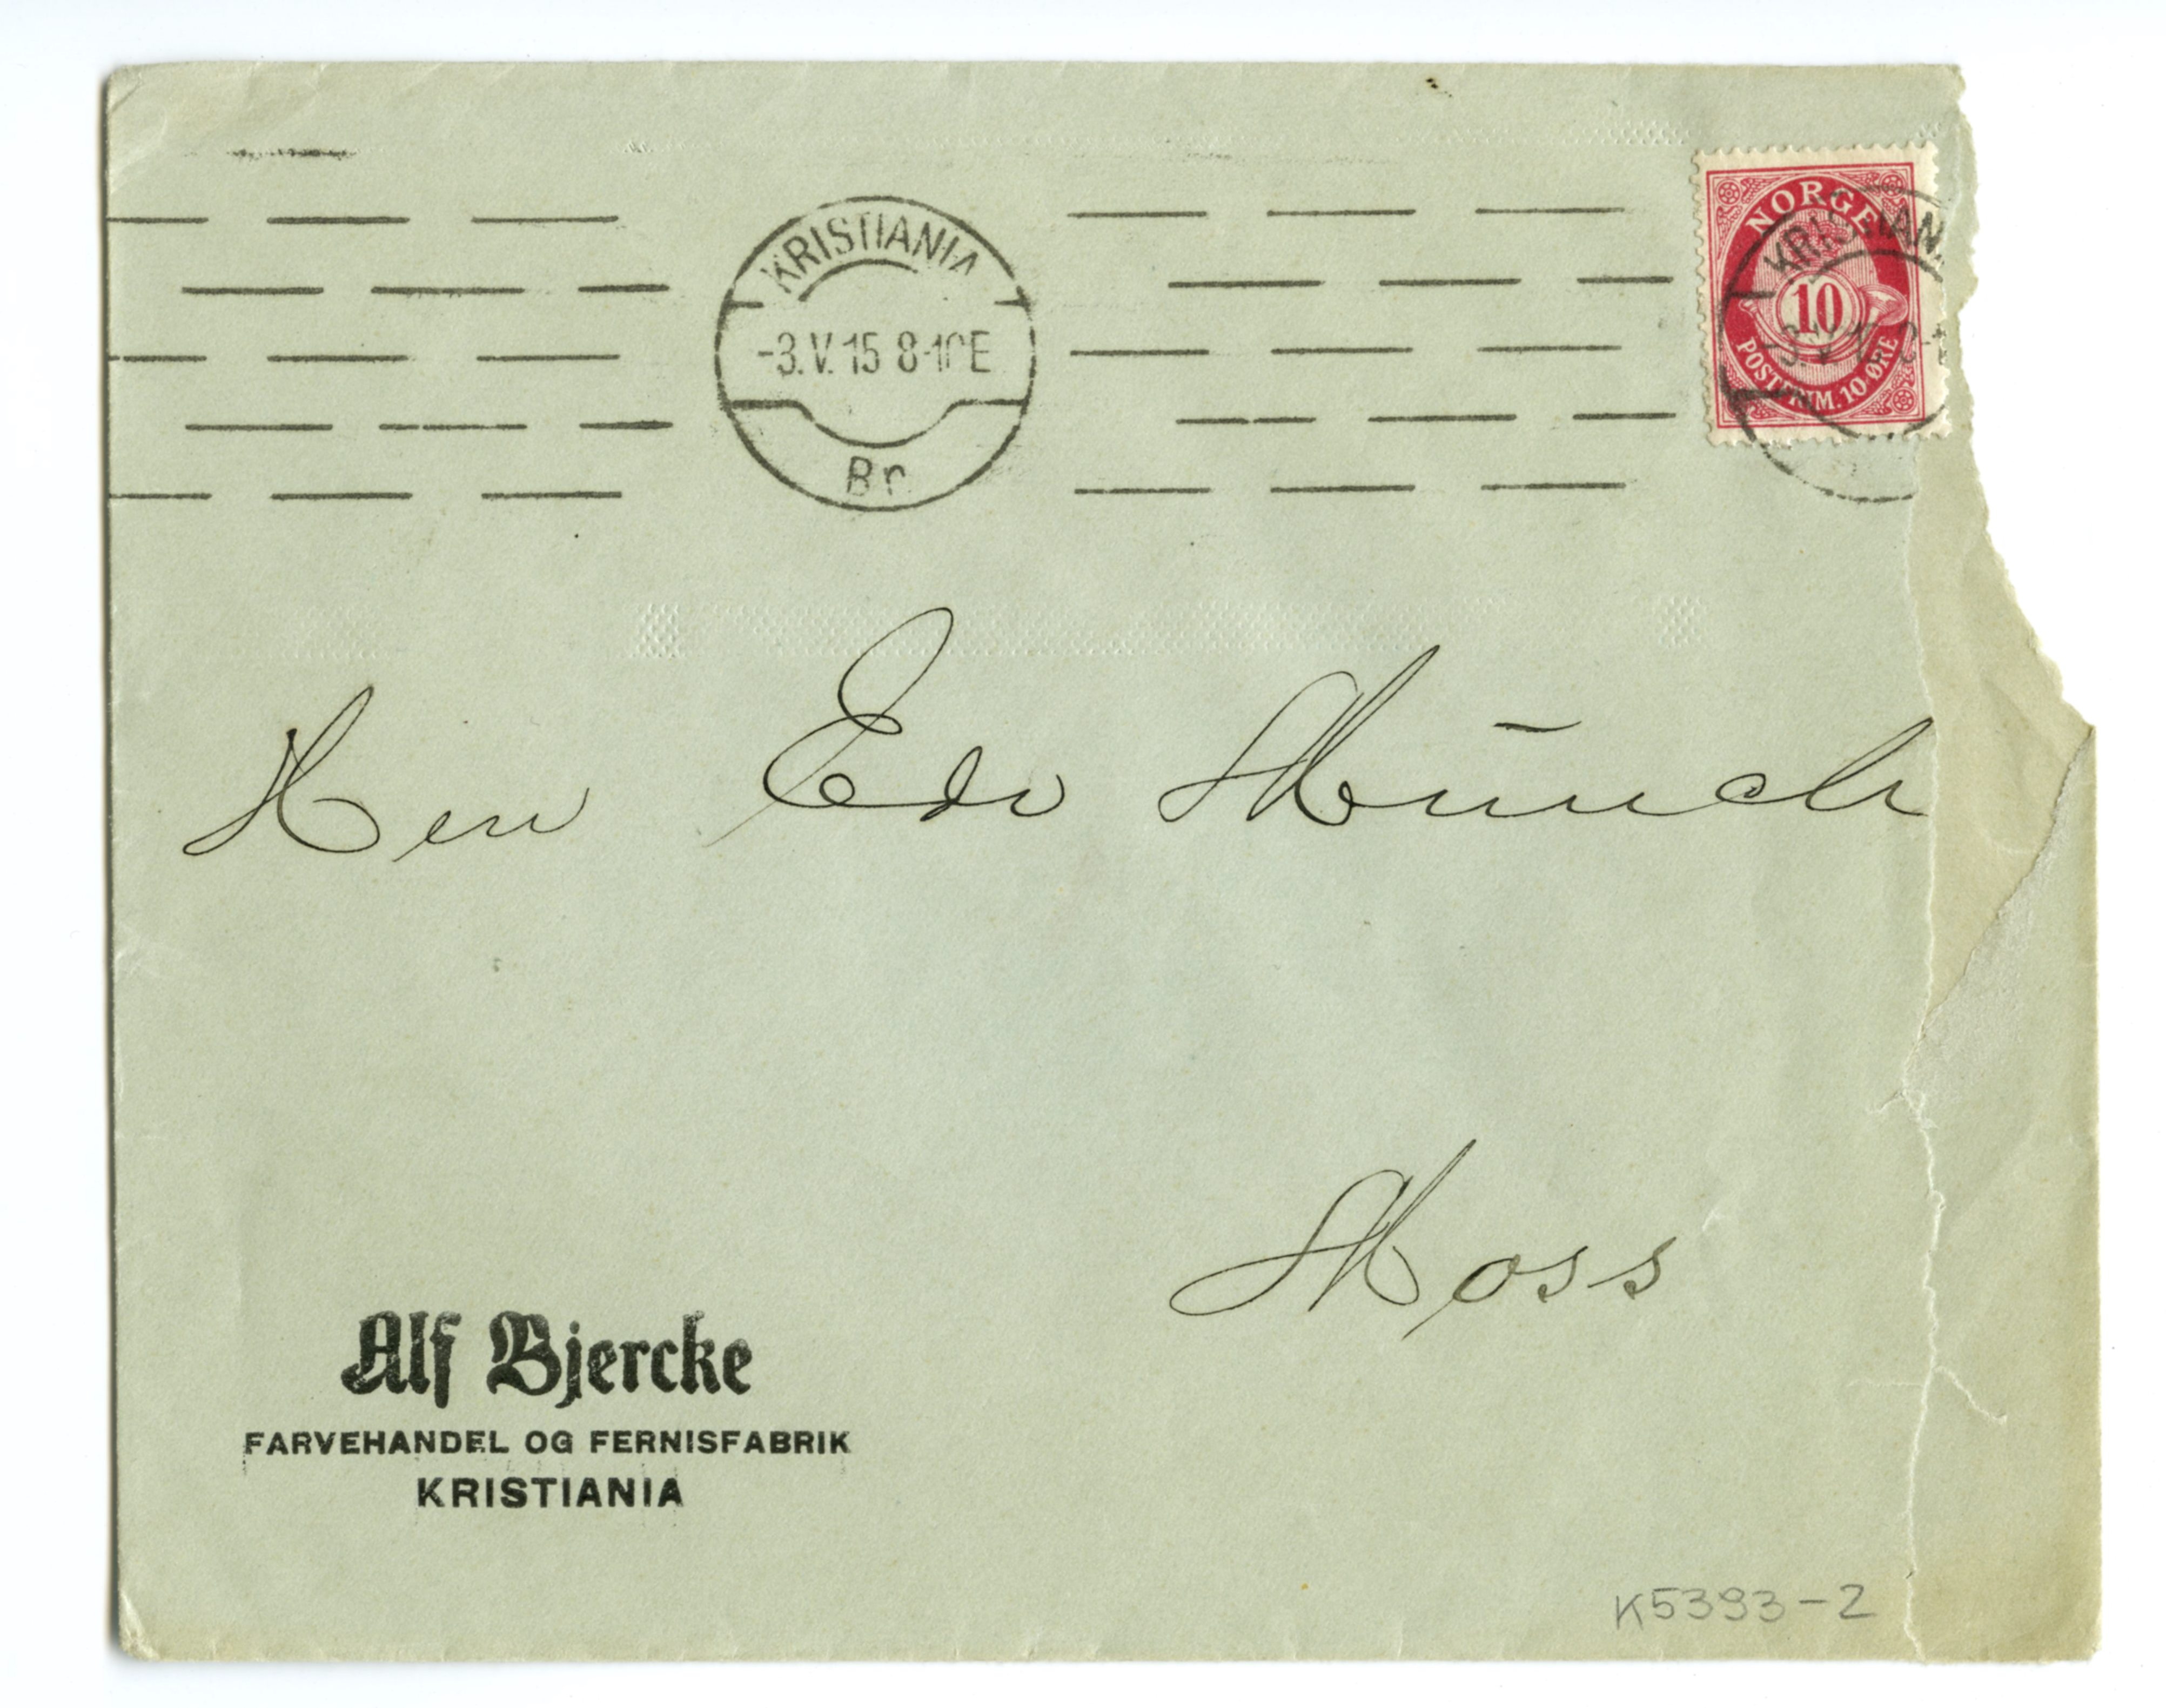 KRISTIANIA
-3.V.15 8-10E
Br
NORGE
10
POSTFRIM. 10 ØRE
KRISTIAN
-3.V.1
Herr Edv Munch
Moss
Alf Bjercke
FARVEHANDEL OG FERNISFABRIK
KRISTIANIA
K5393-2